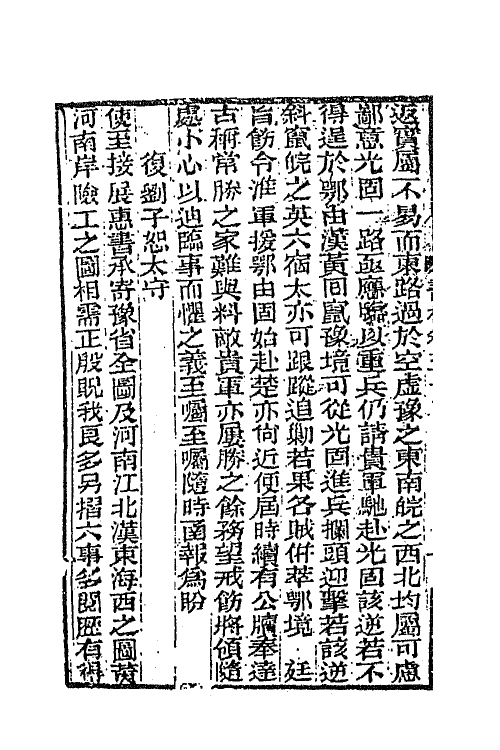 返實屬不易而東路過於空虛豫之東南皖之西北均屬可慮
鄙意光固一路亟應臨以重兵仍請貴軍馳赴光固該逆若不
得逞於鄂由漢黃回竄豫境可從光固進兵攔頭迎擊若該逆
斜竄皖之英六宿太亦可跟蹤追勦若果各賊併萃鄂境廷
旨飭令淮軍援鄂由固始赴楚亦尙近便屆時續有公牘奉達
古稱常勝之家難與料敵貴軍亦屢勝之餘務望戒飭將領隨
處小心以迪臨事而懼之義至囑至囑隨時函報爲盼
復劉子恕太守
使至接展惠書承寄豫省全圖及河南江北漢東海西之圖黃
河南岸險工之圖相需正殷貺我良多另摺六事多閱歷有得